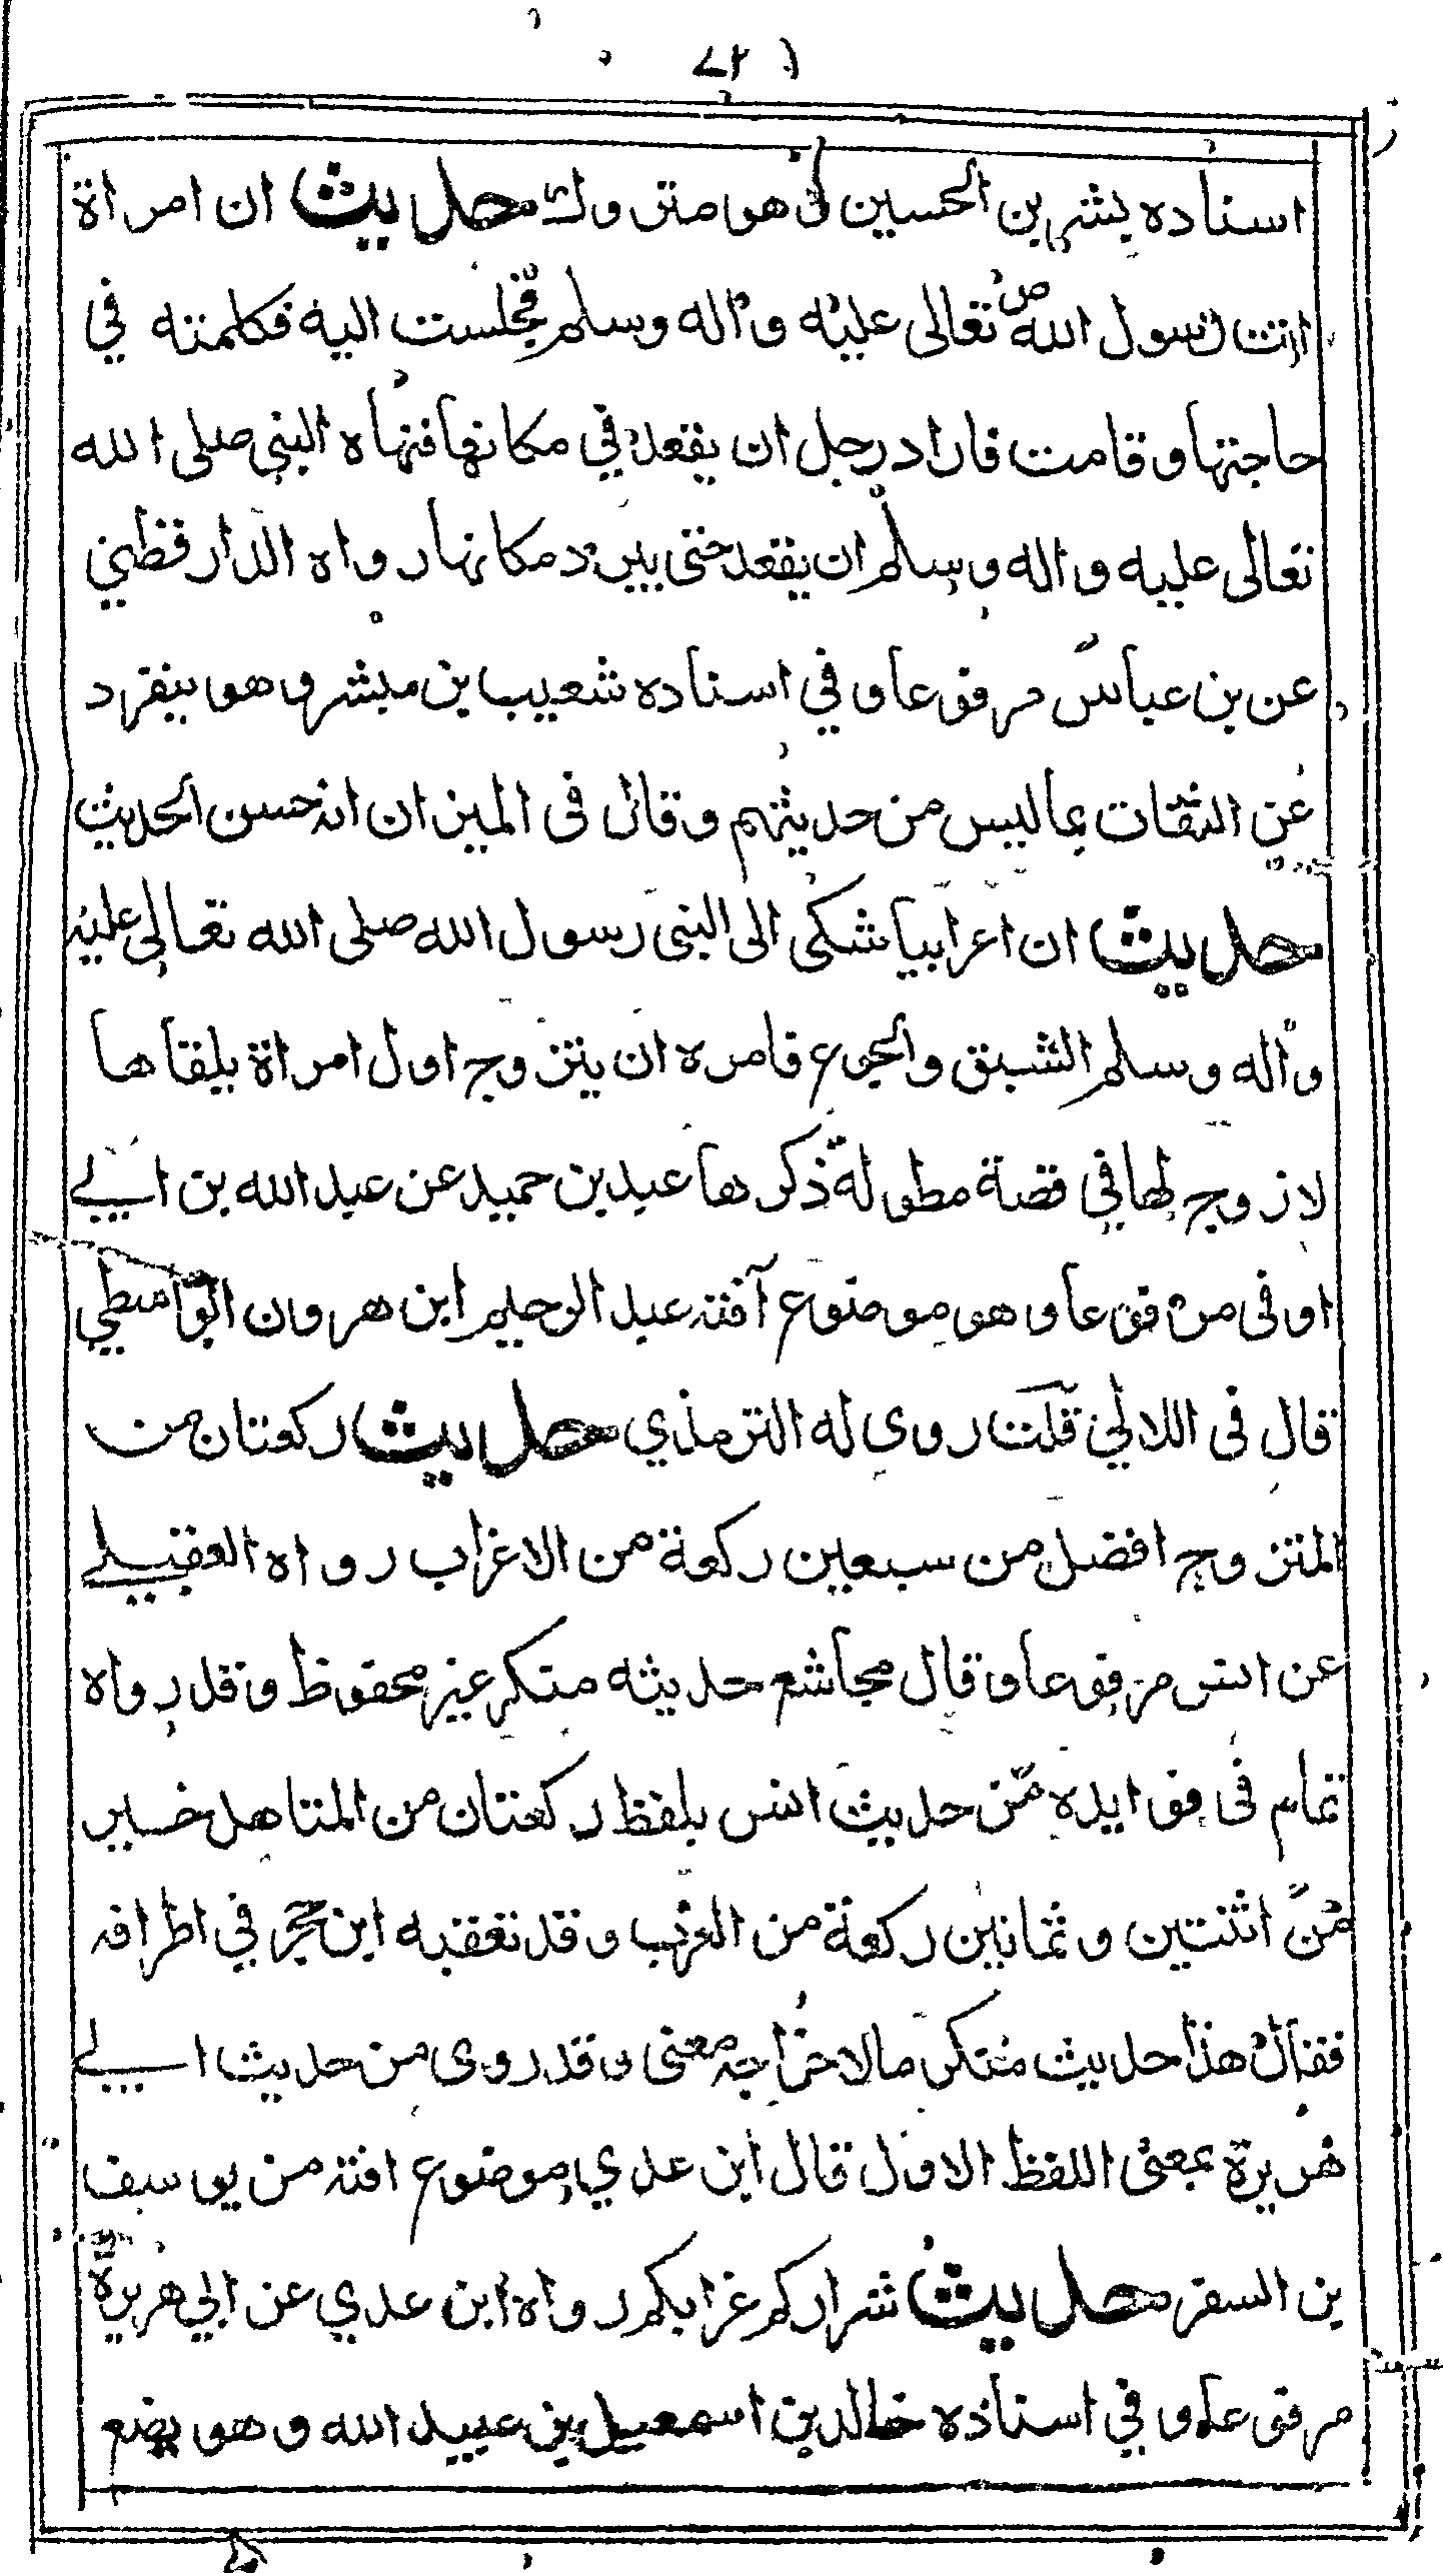 اسناده بشر بن الحسين و هو متروك حديث ان امراة
اتت رسول الله ص تعالى عليه واله وسلم فجلست اليه فكلمته في
حاجتها وقامت فاراد رجل ان يقعد في مكانها فنهاه النبي صلى الله
تعالى عليه واله وسلم ان يقعد حتى يبرد مكانها رواه الدارقطني
عن بن عباس مرفوعا وفي اسناده شعيب بن مبشر وهو ينفرد
عن الثقات بما ليس من حديثهم وقال فى الميزان انه حسن الحديث
حديث ان اعرابيا شكى الى النبى رسول الله صلى الله تعالى عليه
واله وسلم الشبق والجوع فامره ان يتزوج اول امراة يلقاها
لا زوج لها في قصة مطولة ذكرها عبد بن حميد عن عبد الله بن ابي
اوفى مرفوعا وهو موضوع آفته عبد الرحيم ابن هرون الواسطي
قال فى اللالي قلت روى له الترمذي حديث ركعتان من
المتزوج افضل من سبعين ركعة من الاعزاب رواه العقيلي
عن انس مرفوعا وقال مجاشع حديثه منكر غير محفوظ وقد رواه
تمام فى فوايده من حديث انس بلفظ ركعتان من المتاهل خير
من اثنتين وثمانين ركعة من العزب وقد تعقبه ابن حجر في اطرافه
فقال هذا حديث منكر ما لاخراجه معنى وقد روى من حديث ابي
هريرة بمعنى اللفظ الاول قال ابن عدي موضوع افته من يوسف
بن السفر حديث شراركم عزابكم رواه ابن عدي عن ابي هريرة
مرفوعا و في اسناده خالد بن اسمعيل بن عبيد الله وهو يضع